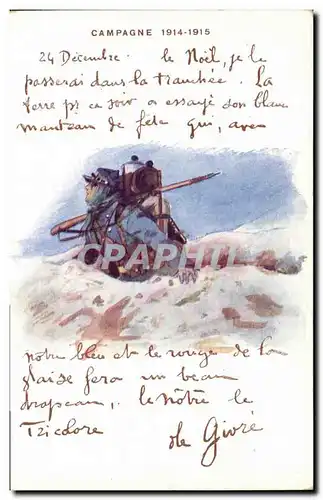 CAMPAGNE 1914-1915
24 Décembre. le Noël, je le
passerai dans la tranchée. La
terre pr ce soir a essayé son blanc
manteau de fête qui, avec
CPAPHIL
notre bleu et le rouge de la
glaise fera un beau
drapeau, le nôtre le
Tricolore
de Givré